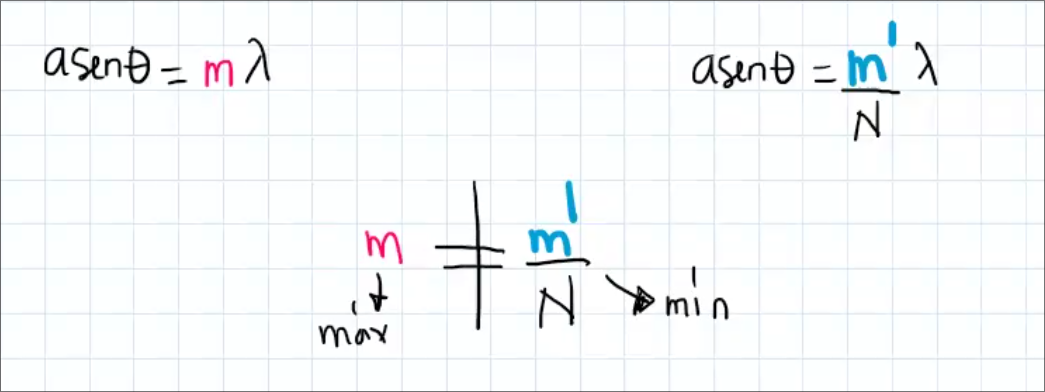 asenθ = mλ
asenθ = m'/N λ
m ≠ m'/N
máx
mín